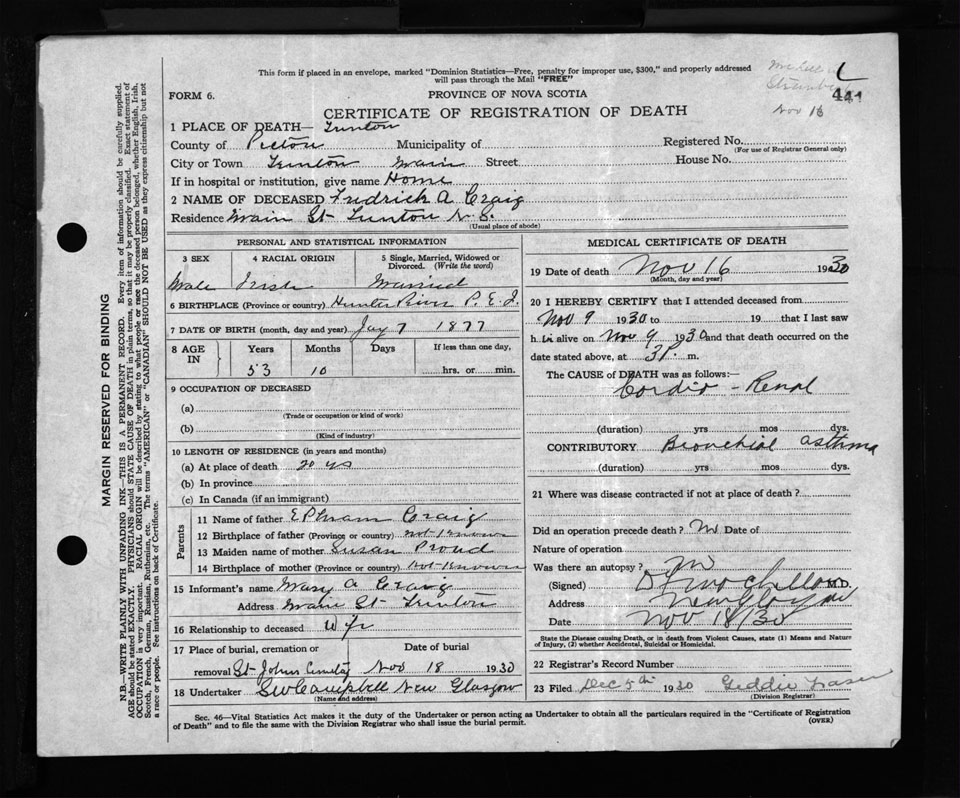 This form if placed in an envelope, marked "Dominion Statistics—Free, penalty for improper use, $300," and properly addressed
will pass through the Mail "FREE"
FORM 6.
PROVINCE OF NOVA SCOTIA
441
Nov 16
CERTIFICATE OF REGISTRATION OF DEATH
1 PLACE OF DEATH— Trenton
County of Pictou Municipality of Registered No.
(For use of Registrar General only)
City or Town Trenton Main Street House No.
If in hospital or institution, give name Home
2 NAME OF DECEASED Fredrick A Craig
Residence Main St Trenton N.S.
(Usual place of abode)
PERSONAL AND STATISTICAL INFORMATION
3 SEX 4 RACIAL ORIGIN 5 Single, Married, Widowed or Divorced. (Write the word)
Male Irish Married
6 BIRTHPLACE (Province or country) Hunter River P.E.I.
7 DATE OF BIRTH (month, day and year) Jay 7 1877
8 AGE IN Years Months Days If less than one day,
53 10 hrs. or min.
9 OCCUPATION OF DECEASED
(a)
(Trade or occupation or kind of work)
(b)
(Kind of industry)
10 LENGTH OF RESIDENCE (in years and months)
(a) At place of death 20 ys
(b) In province
(c) In Canada (if an immigrant)
Parents
11 Name of father EPhriam Craig
12 Birthplace of father (Province or country) not Known
13 Maiden name of mother Susan Proud
14 Birthplace of mother (Province or country) Not Known
15 Informant's name Mary A Craig
Address Main St Trenton
16 Relationship to deceased Wife
17 Place of burial, cremation or Date of burial
removal St Johns Cemetey Nov 18 1930
18 Undertaker S W Campbell New Glasgow
(Name and address)
MEDICAL CERTIFICATE OF DEATH
19 Date of death Nov 16 1930
(Month, day and year)
20 I HEREBY CERTIFY that I attended deceased from
Nov 9 1930 to 19 that I last saw
h im alive on Nov 9 1930 and that death occurred on the
date stated above, at 3 P. m.
The CAUSE of DEATH was as follows:—
Cordio - Renal
(duration) yrs mos dys.
CONTRIBUTORY Bronchial asthma
(duration) yrs mos dys.
21 Where was disease contracted if not at place of death?
Did an operation precede death? No Date of
Nature of operation
Was there an autopsy? No
(Signed) M.D.
Address New Glasgow
Date Nov 18/30
State the Disease causing Death, or in death from Violent Causes, state (1) Means and Nature
of Injury, (2) whether Accidental, Suicidal or Homicidal.
22 Registrar's Record Number
23 Filed Dec 5th 1930 Geddie Fraser
(Division Registrar)
Sec. 46—Vital Statistics Act makes it the duty of the Undertaker or person acting as Undertaker to obtain all the particulars required in the "Certificate of Registration
of Death" and to file the same with the Division Registrar who shall issue the burial permit.
(OVER)
MARGIN RESERVED FOR BINDING
N.B.—WRITE PLAINLY WITH UNFADING INK—THIS IS A PERMANENT RECORD. Every item of information should be carefully supplied.
AGE should be stated EXACTLY. PHYSICIANS should STATE CAUSE OF DEATH in plain terms, so that it may be properly classified. Exact statement of
OCCUPATION is very important. RACIAL ORIGIN will be described by stating to what people or race the deceased person belonged, whether English, Irish,
Scotch, French, German, Russian, Ruthenian, etc. The terms "AMERICAN" or "CANADIAN" SHOULD NOT BE USED as they express citizenship but not
a race or people. See instructions on back of Certificate.